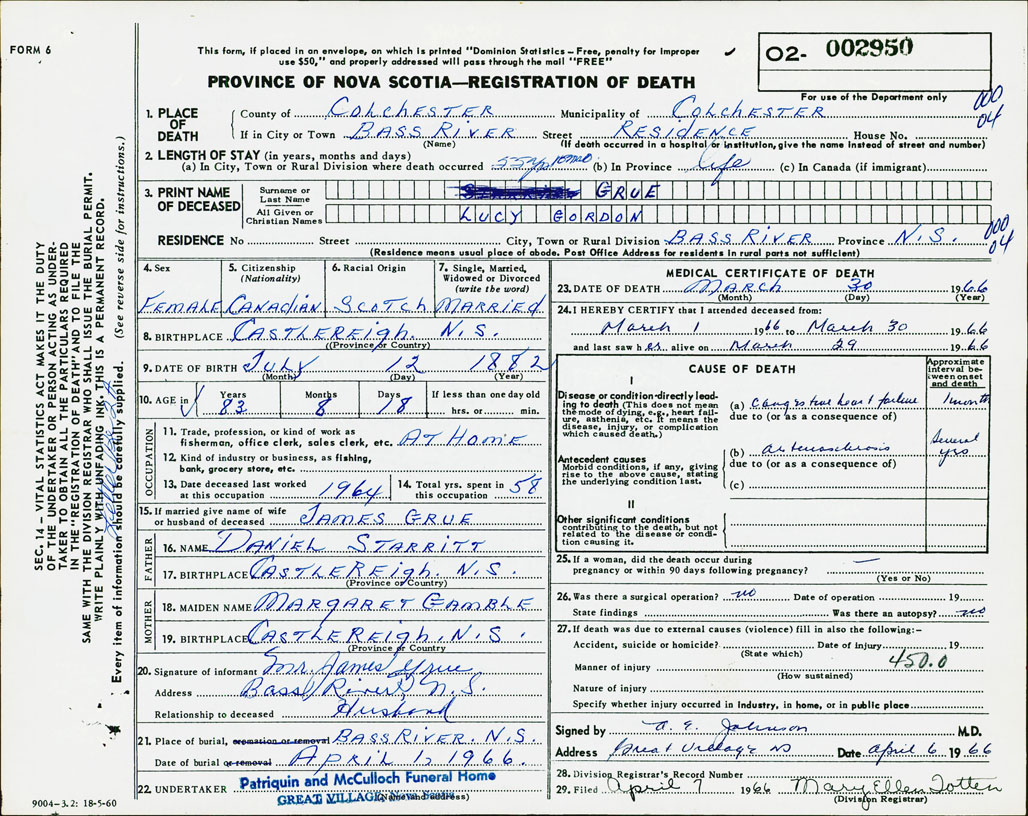 FORM 6
This form, if placed in an envelope, on which is printed "Dominion Statistics – Free, penalty for improper
use $50," and properly addressed will pass through the mail "FREE"
O2- 002950
PROVINCE OF NOVA SCOTIA—REGISTRATION OF DEATH
For use of the Department only
000
04
1. PLACE OF DEATH
County of COLCHESTER Municipality of COLCHESTER
If in City or Town BASS RIVER Street RESIDENCE House No.
(Name) (If death occurred in a hospital or institution, give the name instead of street and number)
2. LENGTH OF STAY (in years, months and days)
(a) In City, Town or Rural Division where death occurred 55 yrs 10 mos (b) In Province life (c) In Canada (if immigrant)
3. PRINT NAME OF DECEASED
Surname or Last Name GRUE
All Given or Christian Names LUCY GORDON
000
04
RESIDENCE No Street City, Town or Rural Division BASS RIVER Province N.S.
(Residence means usual place of abode. Post Office Address for residents in rural parts not sufficient)
4. Sex
FEMALE
5. Citizenship
(Nationality)
CANADIAN
6. Racial Origin
SCOTCH
7. Single, Married,
Widowed or Divorced
(write the word)
MARRIED
8. BIRTHPLACE CASTLEREIGH. N.S.
(Province or Country)
9. DATE OF BIRTH JULY 12 1882
(Month) (Day) (Year)
10. AGE in
Years Months Days If less than one day old
83 8 18 hrs. or min.
OCCUPATION
11. Trade, profession, or kind of work as
fisherman, office clerk, sales clerk, etc. AT HOME
12. Kind of industry or business, as fishing,
bank, grocery store, etc.
13. Date deceased last worked
at this occupation 1964
14. Total yrs. spent in
this occupation 58
15. If married give name of wife
or husband of deceased JAMES GRUE
FATHER
16. NAME DANIEL STARRITT
17. BIRTHPLACE CASTLEREIGH. N.S.
(Province or Country)
MOTHER
18. MAIDEN NAME MARGARET GAMBLE
19. BIRTHPLACE CASTLEREIGH. N.S.
(Province or Country)
20. Signature of informant Mr. James Grue
Address Bass River, N.S.
Relationship to deceased Husband
21. Place of burial, cremation or removal BASS RIVER. N.S.
Date of burial or removal APRIL 1, 1966.
22. UNDERTAKER Patriquin and McCulloch Funeral Home
GREAT VILLAGE, Nova Scotia
(Name and address)
9004–3.2: 18-5-60
MEDICAL CERTIFICATE OF DEATH
23. DATE OF DEATH MARCH 30 1966
(Month) (Day) (Year)
24. I HEREBY CERTIFY that I attended deceased from:
March 1 1966 to March 30 1966
and last saw her alive on March 29 1966
CAUSE OF DEATH
Approximate
interval be-
tween onset
and death
I
Disease or condition directly lead-
ing to death (This does not mean
the mode of dying, e.g., heart fail-
ure, asthenia, etc. It means the
disease, injury, or complication
which caused death.)
(a) Congestive heart failure 1 month
due to (or as a consequence of)
Antecedent causes
Morbid conditions, if any, giving
rise to the above cause, stating
the underlying condition last.
(b) arteriosclerosis Several yrs
due to (or as a consequence of)
(c)
II
Other significant conditions
contributing to the death, but not
related to the disease or condi-
tion causing it.
25. If a woman, did the death occur during
pregnancy or within 90 days following pregnancy? —
(Yes or No)
26. Was there a surgical operation? no Date of operation 19
State findings Was there an autopsy? no
27. If death was due to external causes (violence) fill in also the following:–
Accident, suicide or homicide? Date of injury 19
(State which)
450.0
Manner of injury
(How sustained)
Nature of injury
Specify whether injury occurred in industry, in home, or in public place
Signed by A. E. Johnson M.D.
Address Great Village NS Date April 6 1966
28. Division Registrar's Record Number
29. Filed April 7 1966 Mary Ellen Totten
(Division Registrar)
SEC. 14 – VITAL STATISTICS ACT MAKES IT THE DUTY
OF THE UNDERTAKER OR PERSON ACTING AS UNDER-
TAKER TO OBTAIN ALL THE PARTICULARS REQUIRED
IN THE "REGISTRATION OF DEATH" AND TO FILE THE
SAME WITH THE DIVISION REGISTRAR WHO SHALL ISSUE THE BURIAL PERMIT.
WRITE PLAINLY WITH UNFADING INK. THIS IS A PERMANENT RECORD.
Every item of information should be carefully supplied. (See reverse side for instructions.)